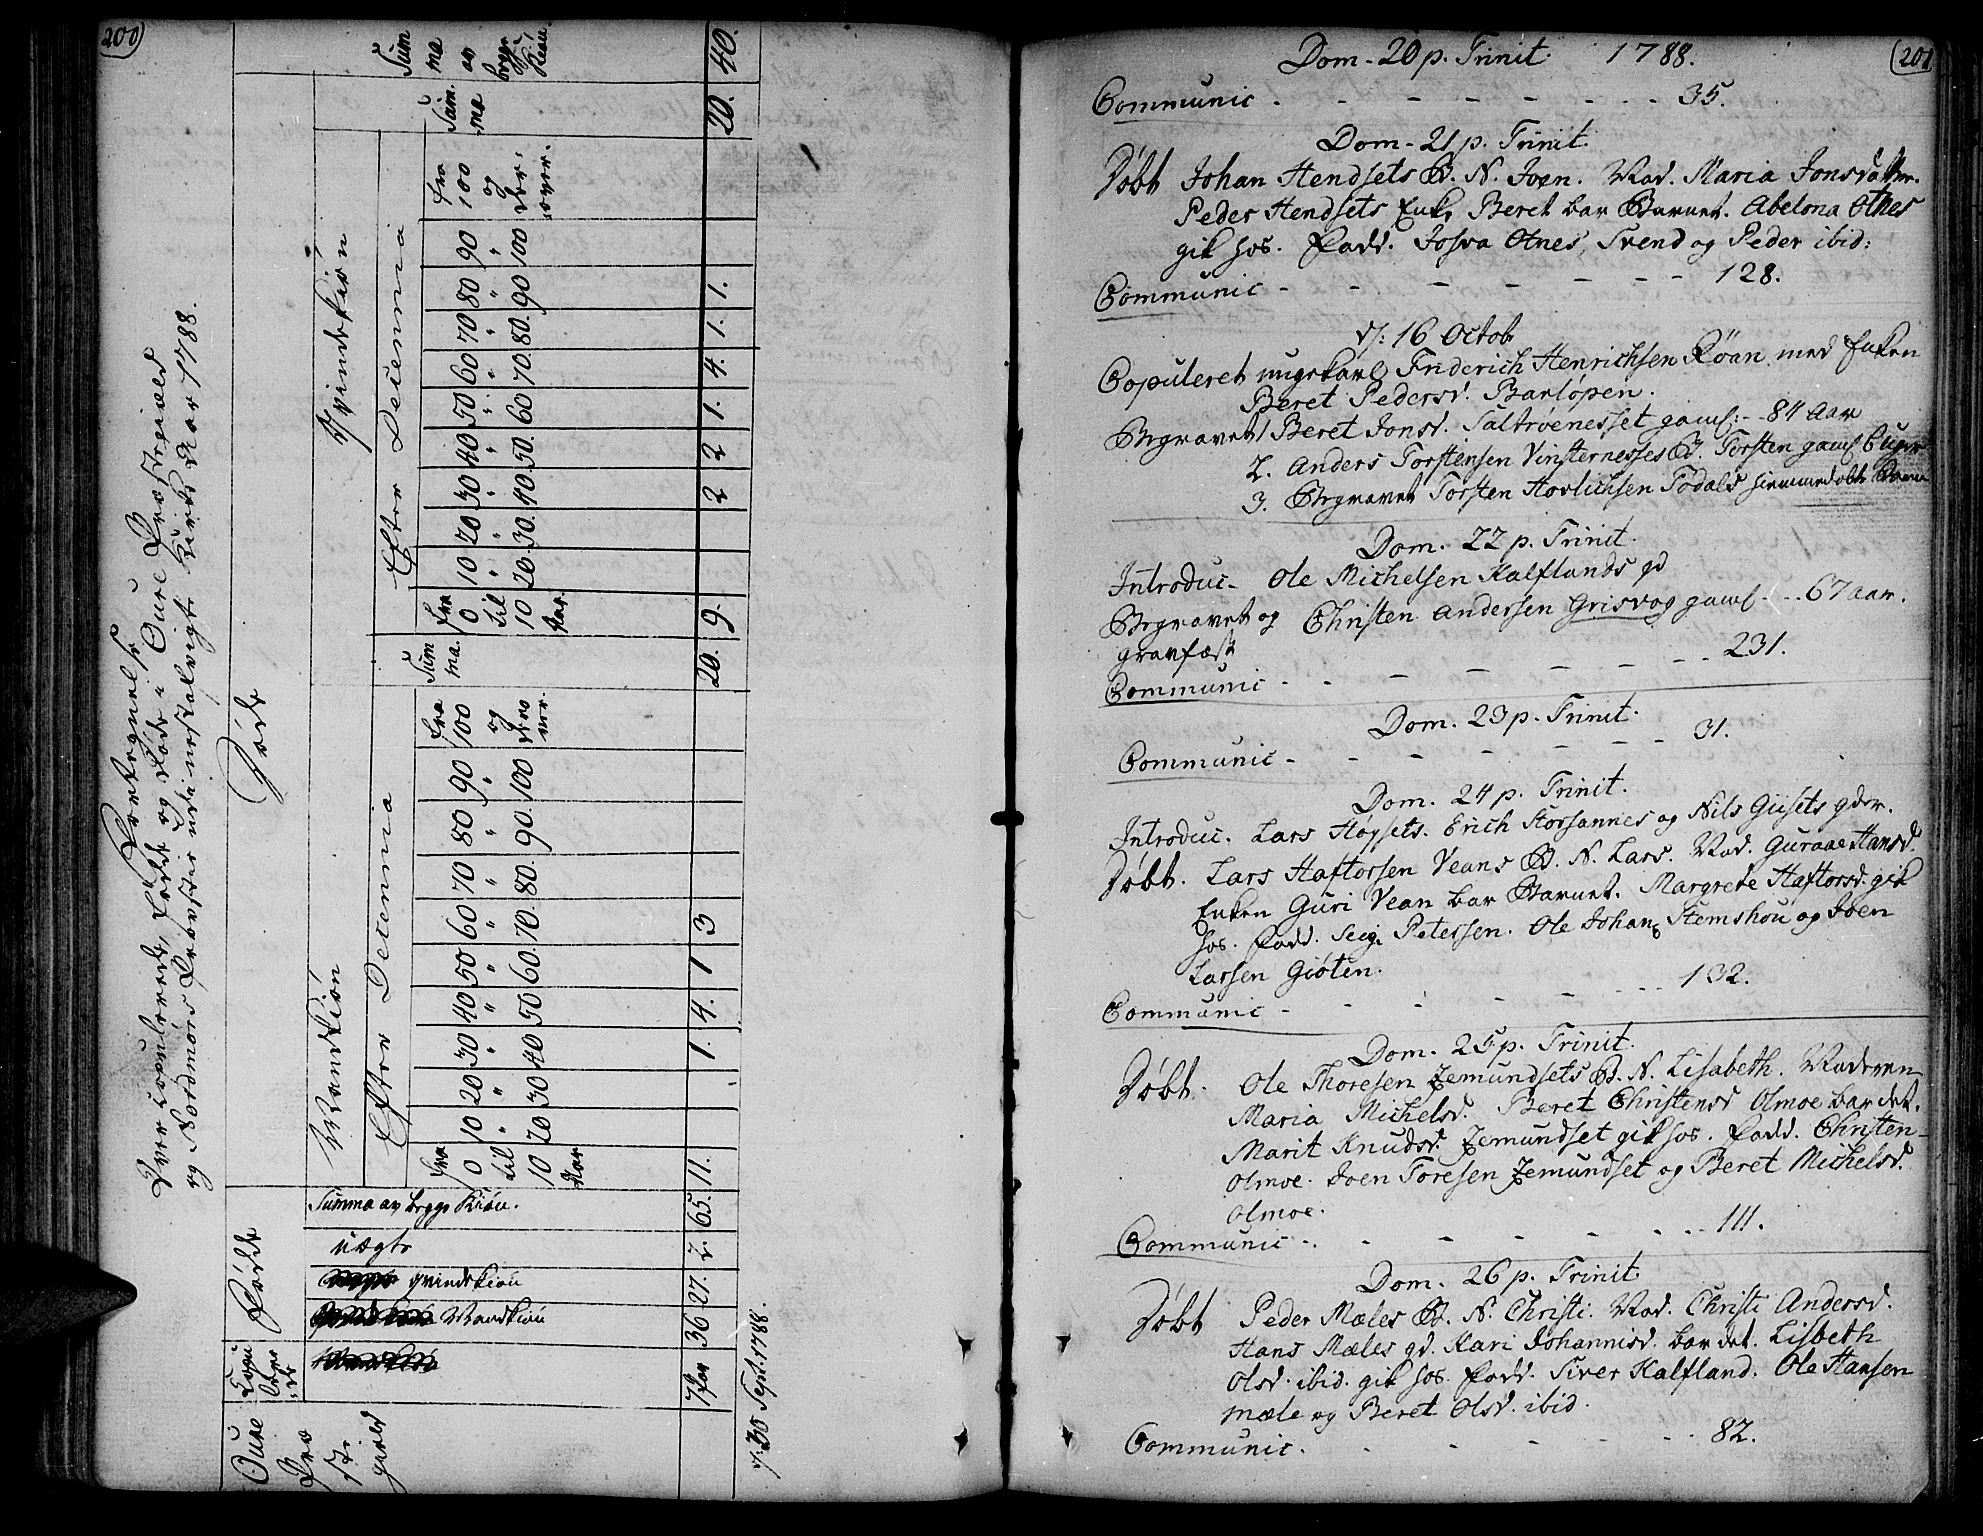 200
Fortegnelse
Over Copulerede, Fødde og Døde i Oure Præstegield
og Nordmørs Provstie udi nestafvigte Kirke Aar 1788.
Oure Præ sti gield
Copu lere de
Fødde
Døde
Mandkiøn
Qvindekiøn
Efter Decennia
Efter Decennia
Mandkiøn
qvindekiøn
uægte
Summa av begge Kiøn.
Fra 0 til 10 Aar
10 " 20
20 " 30
30 " 40
40 " 50
50 " 60.
60 " 70.
70 " 80.
80 " 90.
90 " 100
Fra 100 og derover.
Summa.
Fra 0 til 10 Aar.
10 " 20.
20 " 30.
30 " 40.
40 " 50.
50 " 60
60 " 70.
70 " 80.
80 " 90
90 " 100
Fra 100 og derover.
Summa
Summa av begge Kiøn
7 Par 36 27. 2. 65. 11. 1. 4. 1 3 20. 9. 2 2 1. 4. 1. 1. 20. 40.
d: 30 Sept. 1788.
201
Dom. 20 p. Trinit. 1788.
Communic - - - 35.
Dom. 21 p. Trinit.
Døbt Johan Hendsets B. N. Joen. Mod. Maria Jonsdatter.
Peder Hendsets Enke Beret bar Barnet. Abelona Otnes
gik hos. Fadd. Josva Otnes, Svend og Peder ibid:
Communic - - - 128.
d: 16 Octob
Copuleret ungekarl Friderich Henrichsen Røan med Enken
Beret Pedersd. Barløpen.
Begravet 1 Beret Jonsd. Saltrøenesset gaml: - 84 Aar
2. Anders Torstensen Vinsternesses B. Torsten gaml 6 uger
3. Begravet Torsten Hovlichsen Todals hiemmedøbt Barn
Dom. 22 p. Trinit.
Introduc - Ole Michelsen Kalflands gd
Begravet og Christen Andersen Grisvog gaml - - 67 aar.
gravfæst
Communic - - - 231.
Dom. 23 p. Trinit.
Communic - - - 31.
Dom. 24 p. Trinit.
Introduc. Lars Høysets. Erich Storsannes og Nils Giisets gder.
Døbt. Lars Haftorsen Veans B. N. Lars. Mod. Guraae Hansd.
Enken Guri Vean bar Barnet. Margrete Haftorsd. gik
hos. Fadd. Petersen. Ole Johans Stemshou og Joen
Larsen Giøten.
Communic - - - 132.
Dom. 25 p. Trinit.
Døbt. Ole Thoresen Jemundsets B. N. Lisabeth. Moderen
Maria Michelsd. Beret Christensd Olmoe bar det.
Marit Knudsd. Jemundset gik hos. Fadd. Christen
Olmoe. Joen Toresen Jemundset og Beret Michelsd.
Olmoe.
Communic - - - 111.
Dom. 26 p. Trinit
Døbt Peder Mæles B. N. Christi. Mod. Christi Andersd.
Hans Mæles gd. Kari Johannisd. bar det. Lisbeth
Olsd. ibid. gik hos. Fadd. Siver Kalfland. Ole Hansen
Mæle og Beret Olsd. ibid.
Communic. - - - 82.